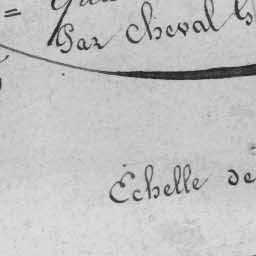 Par Cheval
Echelle de